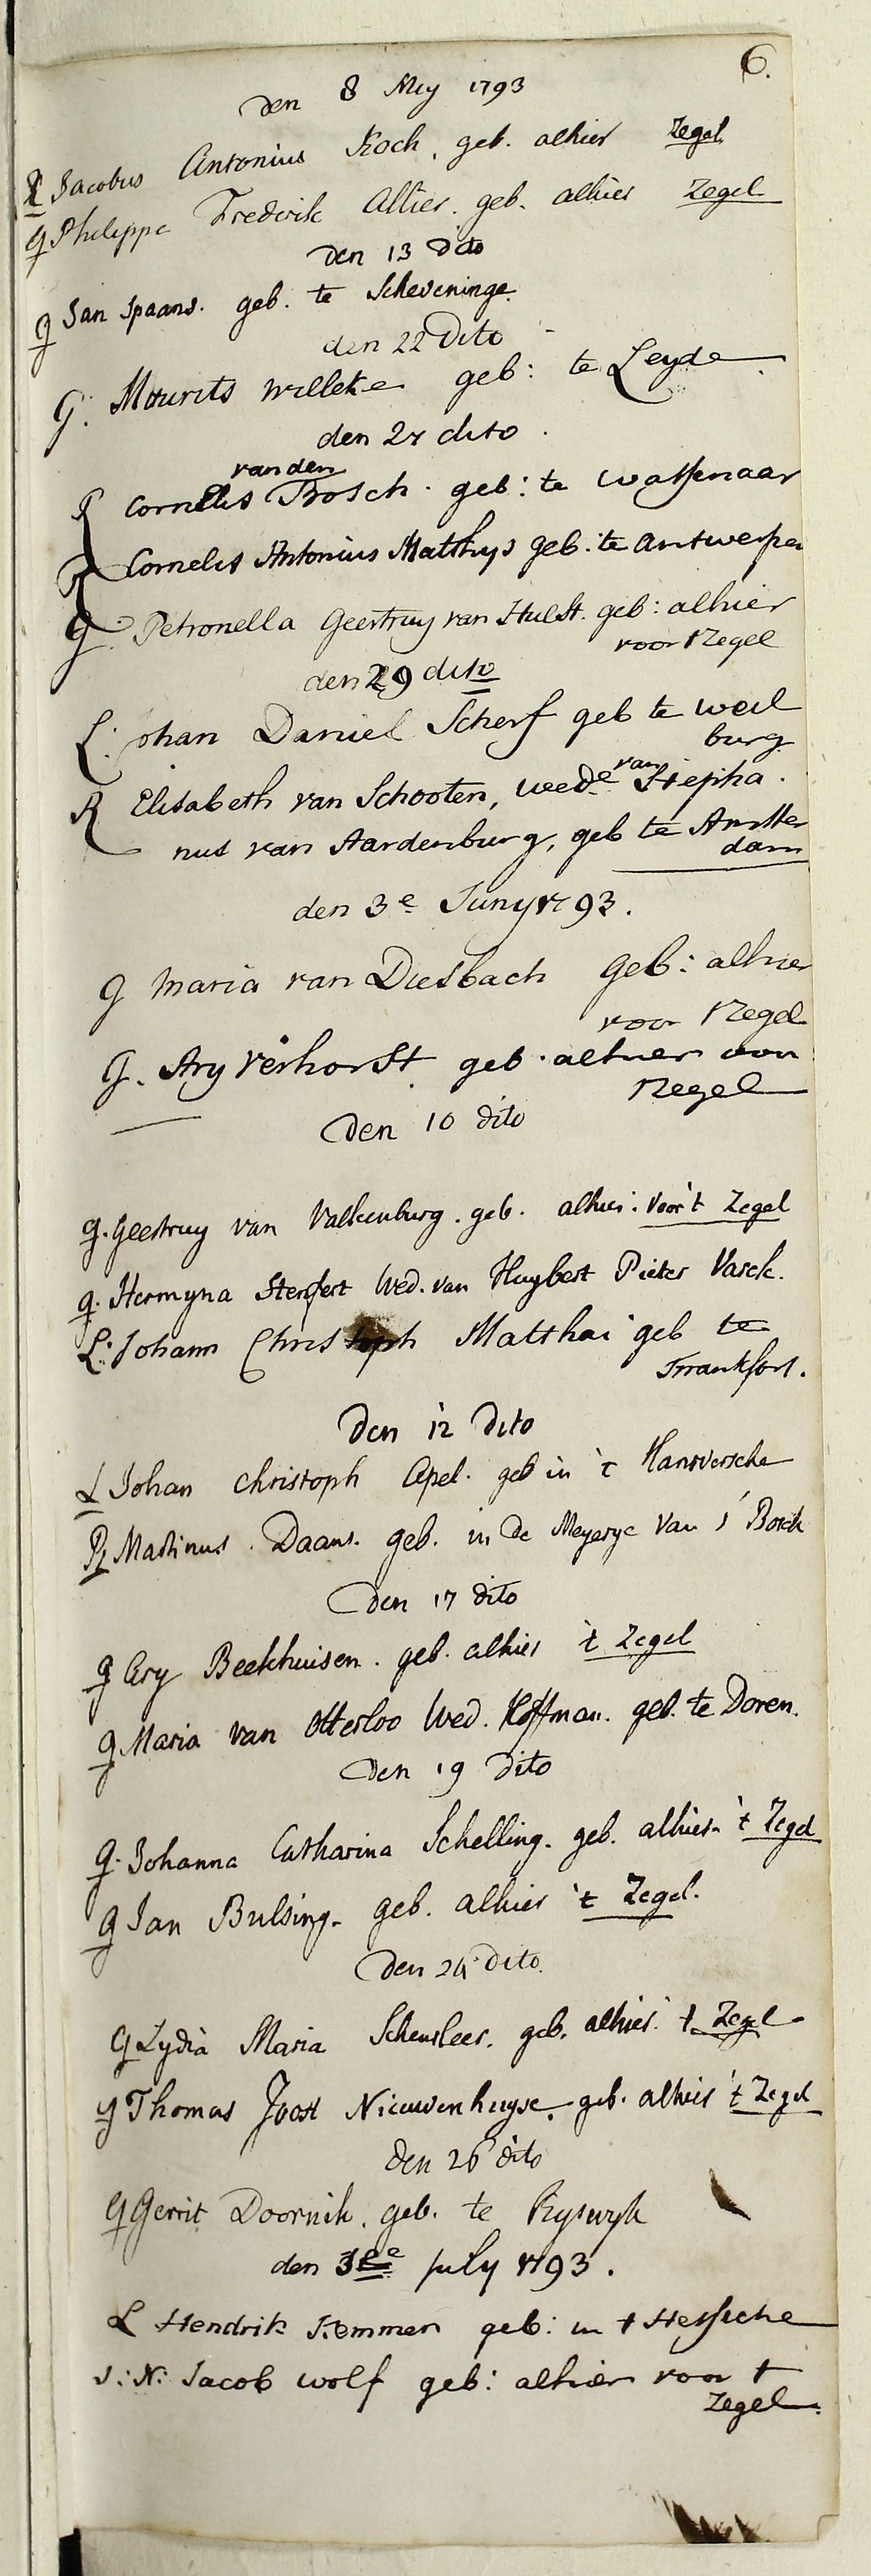 6.
den 8 Mey 1793
R Jacobus Antonius Koch. geb. alhier Zegel
g Philippe Fredrik Allier. geb. alhier Zegel
den 13 dito
g Jan Spaans. geb. te Scheveninge.
den 22 Dito
G. Mourits Willeke geb: te Leyde
den 27 dito.
van den
R Cornelis Bosch. geb: te Wassenaar
R Cornelis Antonius Matthys geb. te Antwerpen
G. Petronella Geertruy van Hulst. geb: alhier
voor t Zegel
den 29 dito
L: Johan Daniel Scherf geb te weil
burg
van
R Elisabeth van Schooten, wede Stepha.
nus van Aardenburg, geb te Amster
dam
den 3e Juny 1793.
g Maria van Diesbach geb: alhier
voor t Zegel
G. Ary Verhorst. geb. alhier voor
t Zegel
Den 10 dito
g. Geertruy van Valkenburg. geb. alhier. voor 't Zegel
g. Hermyna Sterfert Wed. van Huybert Pieter Varck.
L. Johann Christoph Matthai geb te
Frankfort.
Den 12 Dito
L Johan Christoph Apel. geb in 't Hanoversche
R Martinus Daans. geb. in De Meyerye van s' Bosch
Den 17 dito
g Ary Beekhuisen. geb. alhier 't Zegel
g Maria van Otterloo Wed. Hoffman. geb. te Doren.
Den 19 Dito
g. Johanna Catharina Schelling. geb. alhier 't Zegel
g Jan Bulsing. geb. alhier 't Zegel.
Den 24 Dito.
g Lydia Maria Scheurleer. geb. alhier 't Zegel
g Thomas Joost Nieuwenhuyse. geb. alhier 't Zegel
Den 26 dito
g Gerrit Doornik. geb. te Ryswyk
den 3e July 1793.
L Hendrik Kemmer geb: in t Hessche
J: N: Jacob wolf geb: alhier voor t
Zegel.